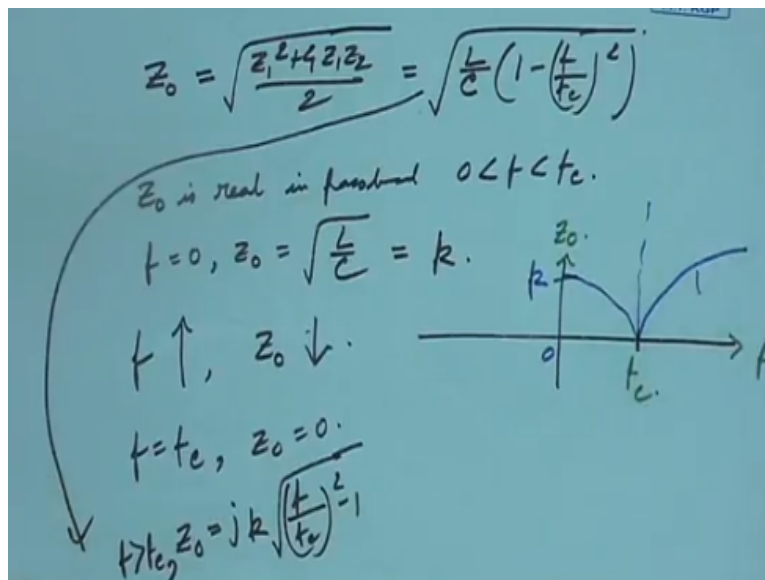 Z₀ = √((Z₁² + 4Z₁Z₂)/2) = √(L/C (1 - (f/fc)²))
Z₀ is real in passband 0 < f < fc.
f = 0, Z₀ = √(L/C) = k.
f ↑, Z₀ ↓.
f = fc, Z₀ = 0.
f > fc, Z₀ = jk√((f/fc)² - 1)
Z₀.
k
0
fc.
f